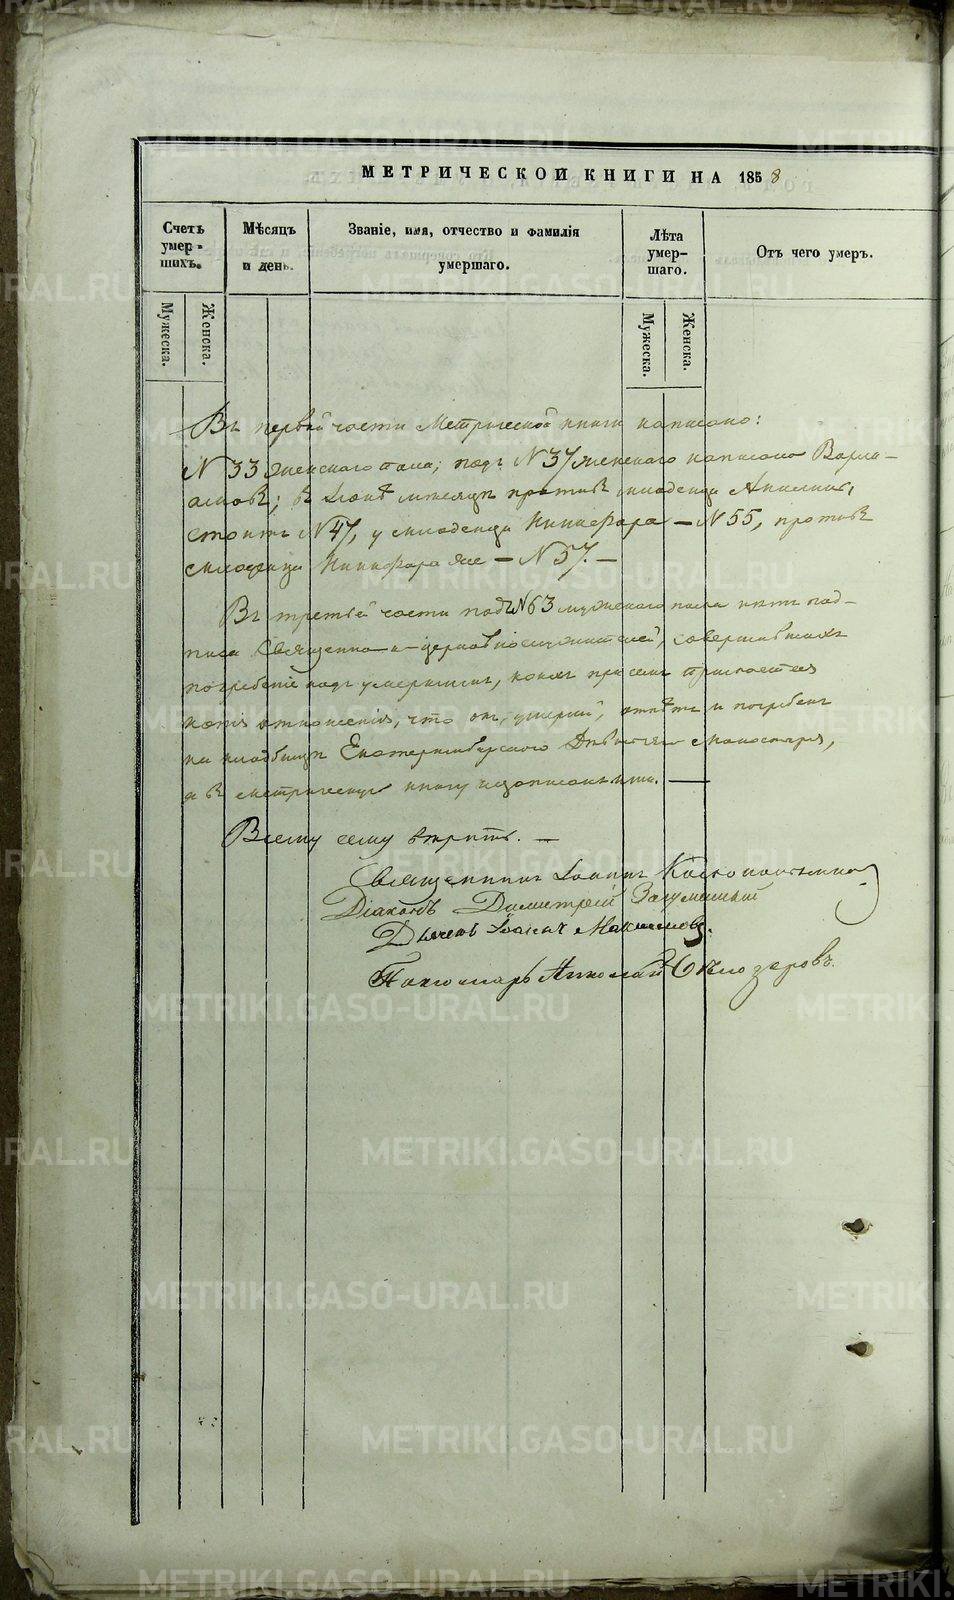 МЕТРИЧЕСКОЙ КНИГИ НА 1858
Счетъ умер-шихъ.
Мѣсяцъ и день.
Званіе, имя, отчество и фамилія умершаго.
Лѣта умер-шаго.
Отъ чего умеръ.
Мужеска.
Женска.
Мужеска.
Женска.
Въ первой части Метрической книги написано:
N 33 женскаго пола; подъ N 37 женскаго написано Варла-
амовъ; въ мѣсяцѣ противъ младенца
стоитъ N 47, у младенца Никифора – N 55, противъ
младенца Никифора же – N 57. –
Въ третьей части подъ N 63 мужескаго пола нѣтъ под-
писа Священно-и-церковнослужителей, совершавшихъ
погребеніе надъ умершимъ,
отношенія, что онъ, умершій, отпѣтъ и погребенъ
на кладбищѣ Екатеринбургскаго Дѣвичья монастыря,
а въ метрическую книгу
Всему сему вѣрить. –
Священникъ Іоаннъ
Діаконъ Димитрій
Дьячекъ Іоаннъ Максимовъ.
Пономарь Николай Бѣлозеровъ.
METRIKI.GASO-URAL.RU